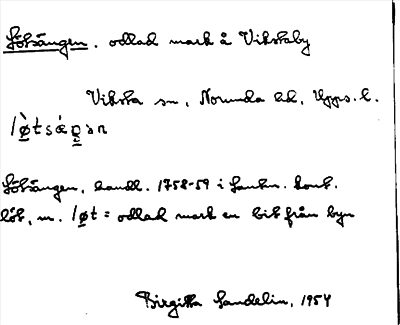 Lötsängen. odlad mark å Viksta by
Viksta sn, Norunda hd, Upps. l.
Lötsängen, handl. 1758-59 i Lantm. kont.
löt, m. /øt = odlad mark en bit från byn
Birgitta Sandelin, 1954